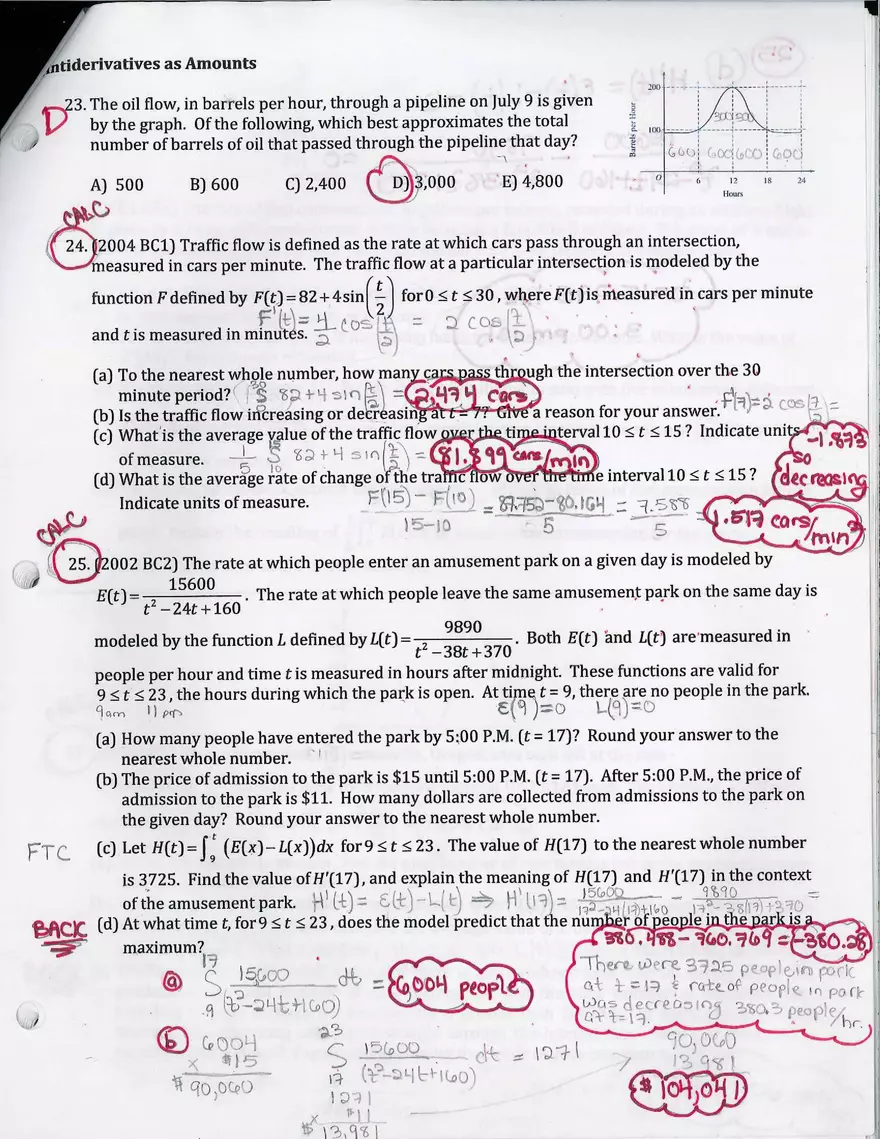 ntiderivatives as Amounts
D 23. The oil flow, in barrels per hour, through a pipeline on July 9 is given
by the graph. Of the following, which best approximates the total
number of barrels of oil that passed through the pipeline that day?
A) 500 B) 600 C) 2,400 D) 3,000 E) 4,800
200
100
Barrels per Hour
300 300
600 600 600 600
O 6 12 18 24
Hours
CALC
24. (2004 BC1) Traffic flow is defined as the rate at which cars pass through an intersection,
measured in cars per minute. The traffic flow at a particular intersection is modeled by the
function F defined by F(t)=82+4sin(t/2) for 0≤t≤30, where F(t) is measured in cars per minute
F'(t)= 4/2 cos(t/2) = 2 cos(t/2)
and t is measured in minutes.
(a) To the nearest whole number, how many cars pass through the intersection over the 30
minute period? ∫ 30 82+4 sin(t/2) = 2,474 cars
(b) Is the traffic flow increasing or decreasing at t = 7? Give a reason for your answer. F'(7)=2 cos(7/2)=
-1.873 so decreasing
(c) What is the average value of the traffic flow over the time interval 10≤t≤15? Indicate units
of measure. 1/5 ∫ 10 82+4 sin(t/2) = 81.899 cars/min
(d) What is the average rate of change of the traffic flow over the time interval 10≤t≤15?
Indicate units of measure. F(15)-F(10)/15-10 = 87.752-80.164/5 = 7.588/5 = 1.517 cars/min²
CALC
25. (2002 BC2) The rate at which people enter an amusement park on a given day is modeled by
E(t)=15600/t²-24t+160. The rate at which people leave the same amusement park on the same day is
modeled by the function L defined by L(t)=9890/t²-38t+370. Both E(t) and L(t) are measured in
people per hour and time t is measured in hours after midnight. These functions are valid for
9≤t≤23, the hours during which the park is open. At time t = 9, there are no people in the park.
9am 11 pm E(9)=0 L(9)=0
(a) How many people have entered the park by 5:00 P.M. (t = 17)? Round your answer to the
nearest whole number.
(b) The price of admission to the park is $15 until 5:00 P.M. (t = 17). After 5:00 P.M., the price of
admission to the park is $11. How many dollars are collected from admissions to the park on
the given day? Round your answer to the nearest whole number.
FTC (c) Let H(t)=∫₉ᵗ (E(x)-L(x))dx for 9≤t≤23. The value of H(17) to the nearest whole number
is 3725. Find the value of H'(17), and explain the meaning of H(17) and H'(17) in the context
of the amusement park. H'(t)= E(t)-L(t) ⇒ H'(17)= 15600/17²-24(17)+160 - 9890/17²-38(17)+370 =
BACK (d) At what time t, for 9≤t≤23, does the model predict that the number of people in the park is a
maximum?
380.488-760.769=-380.28
There were 3725 people in park
at t=17 & rate of people in park
was decreasing 380.3 people/hr.
at t=17.
(a) ∫ 17 9 15600/(t²-24t+160) dt = 6,004 people
(b) 6004
x $15
$ 90,060
∫ 23 17 15600/(t²-24t+160) dt = 1271
1271
x $11
$13,981
90,060
13,981
$104,041